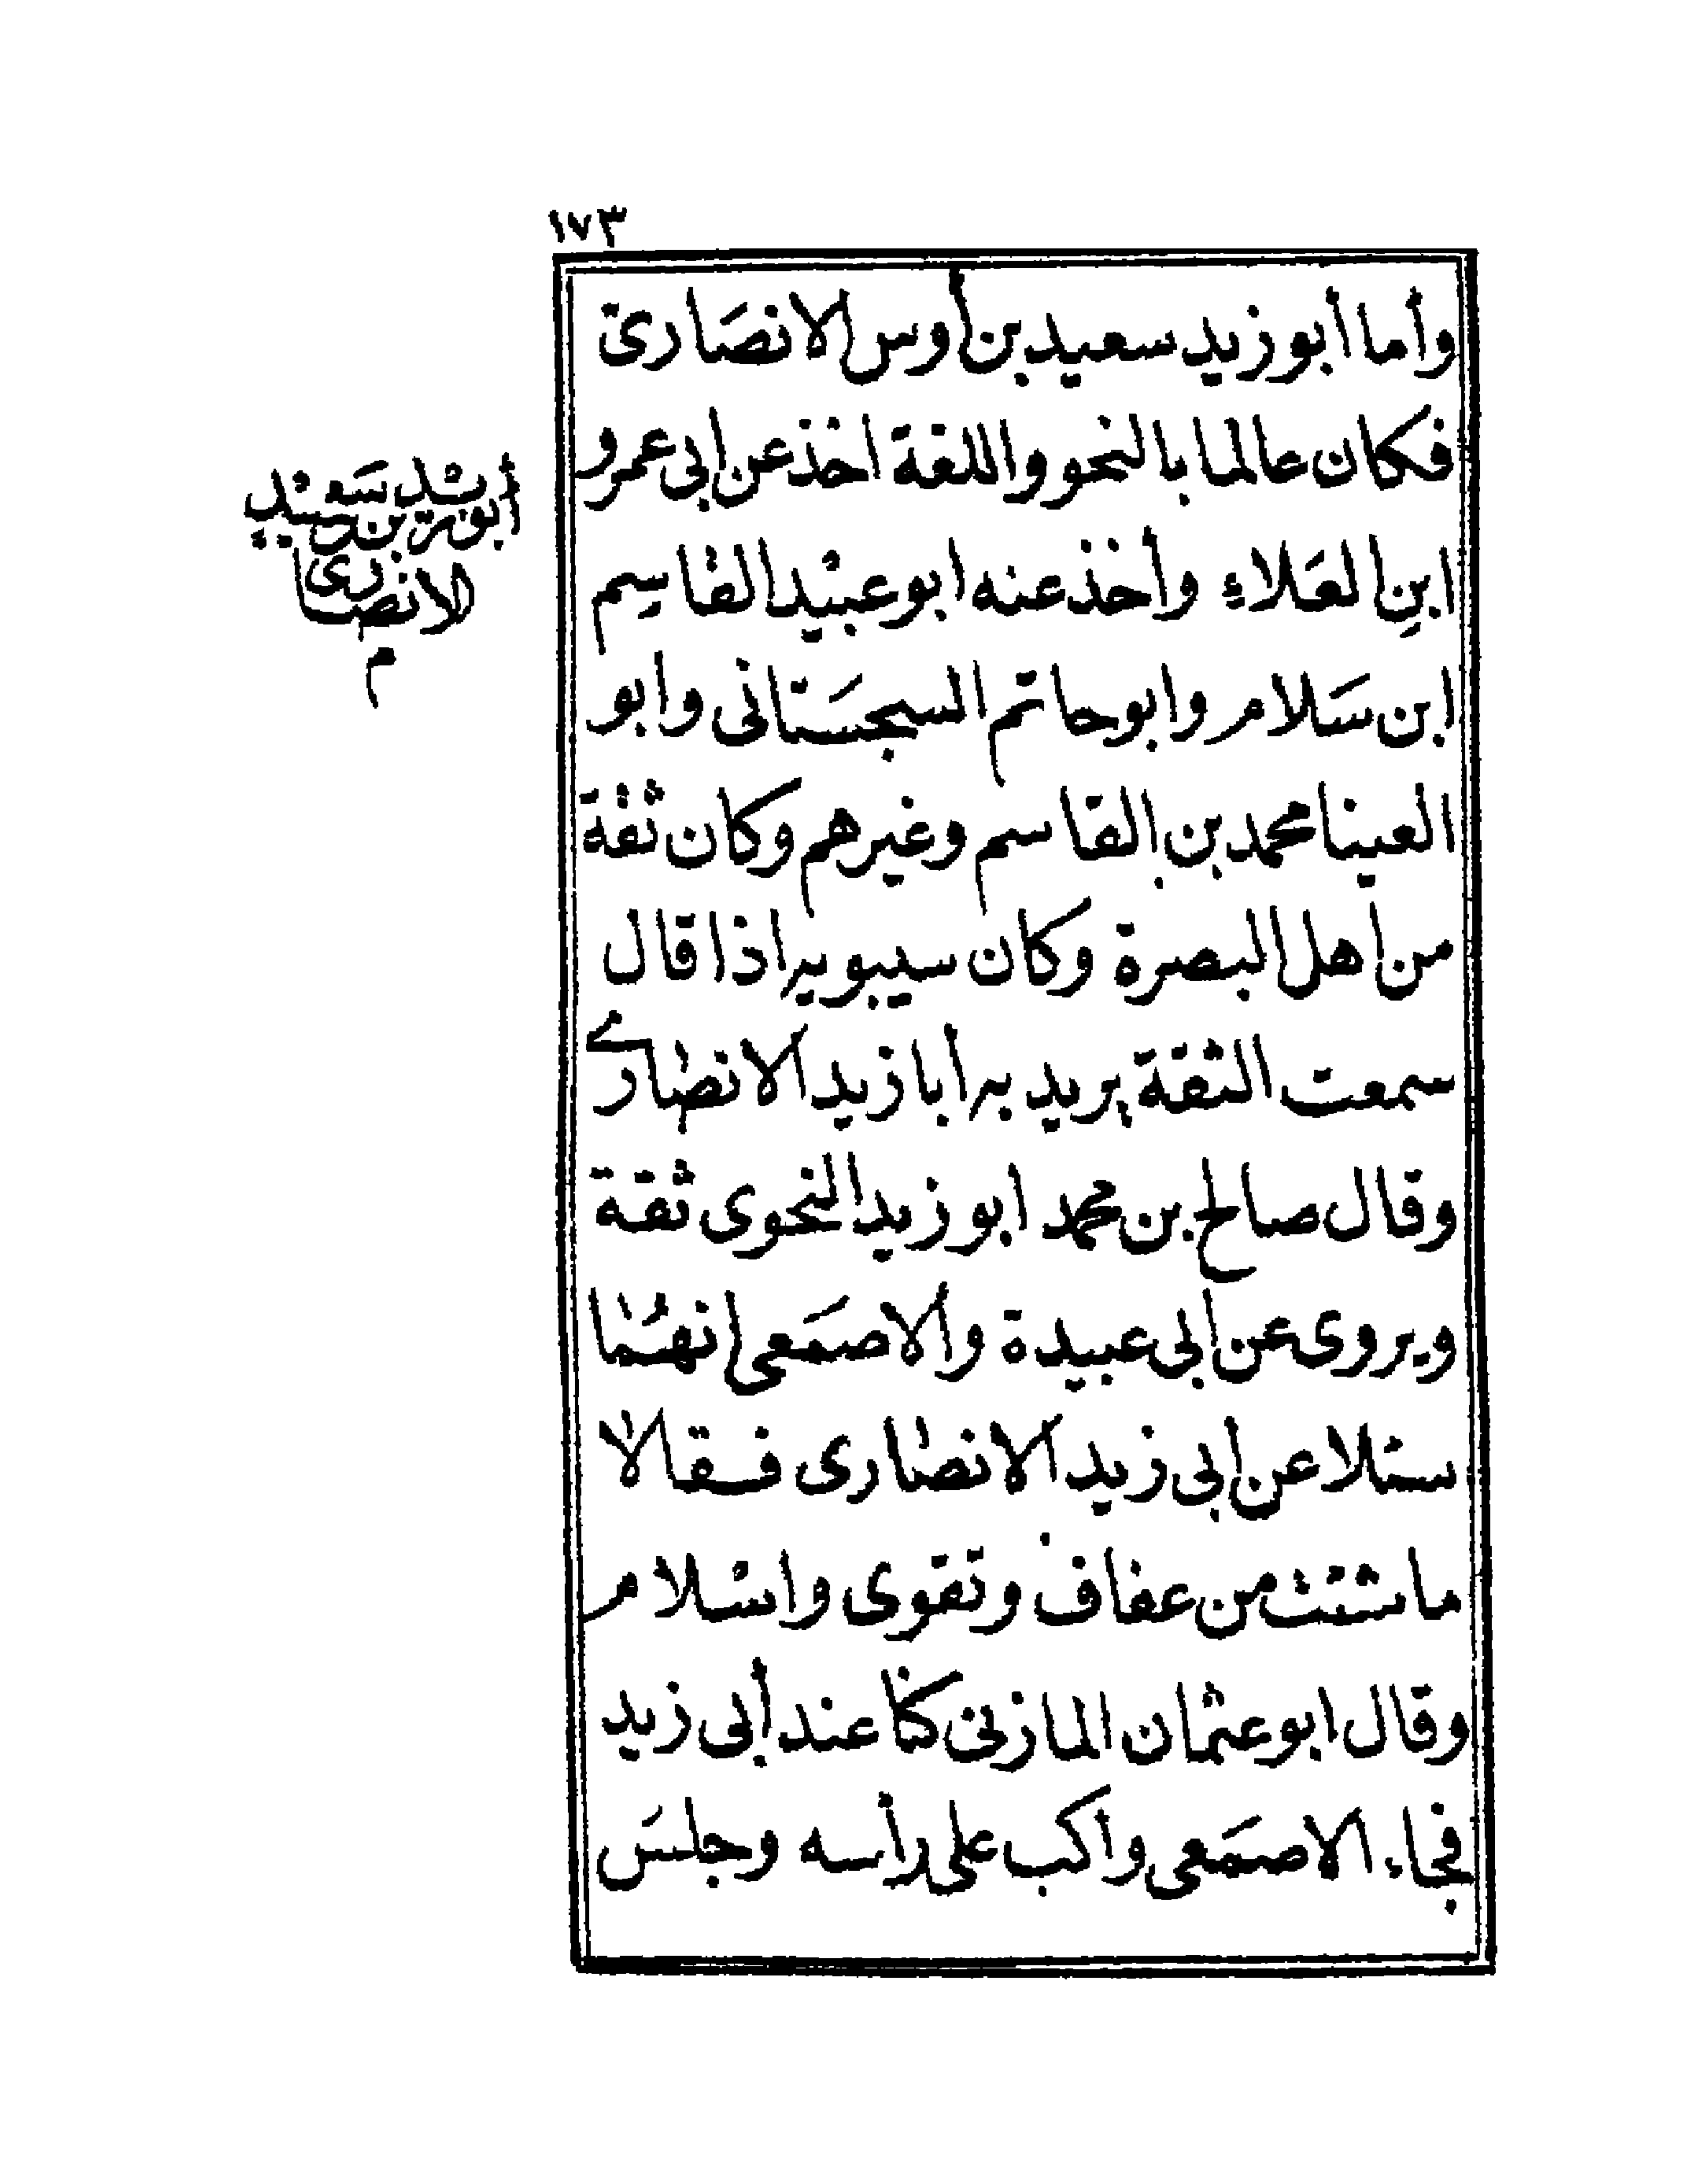 ١٧٣
وأما أبو زيد سعيد بن أوس الانصَارىّ
فكان عالما بالنحو واللغة اخذ عن ابى عمرو
ابنِ العَلاءِ وأخذ عنه ابو عبيْد القاسِم
ابن سَلام وابو حاتم السجسَتانى وابو
العينا محمد بن القاسم وغيرهم وكان ثقة
من اهل البصرة وكان سيبويه اذا قال
سمعت الثقة يريد به أبا زيد الانصارى
وقال صالح بن محمد ابو زيد النحوى ثقة
ويروى عن ابى عبيدة والاصمَعى انهُما
سئلا عن أبى زيد الانصارى فقالا
ما شئت من عفاف وتقوى واسْلام
وقال ابو عثمان المازنى كنا عند أبى زيد
فجاء الاصمَعى وأكب على رأسه وجلسَ
أبو زيد سَعيْد
بن
الانصارى
م